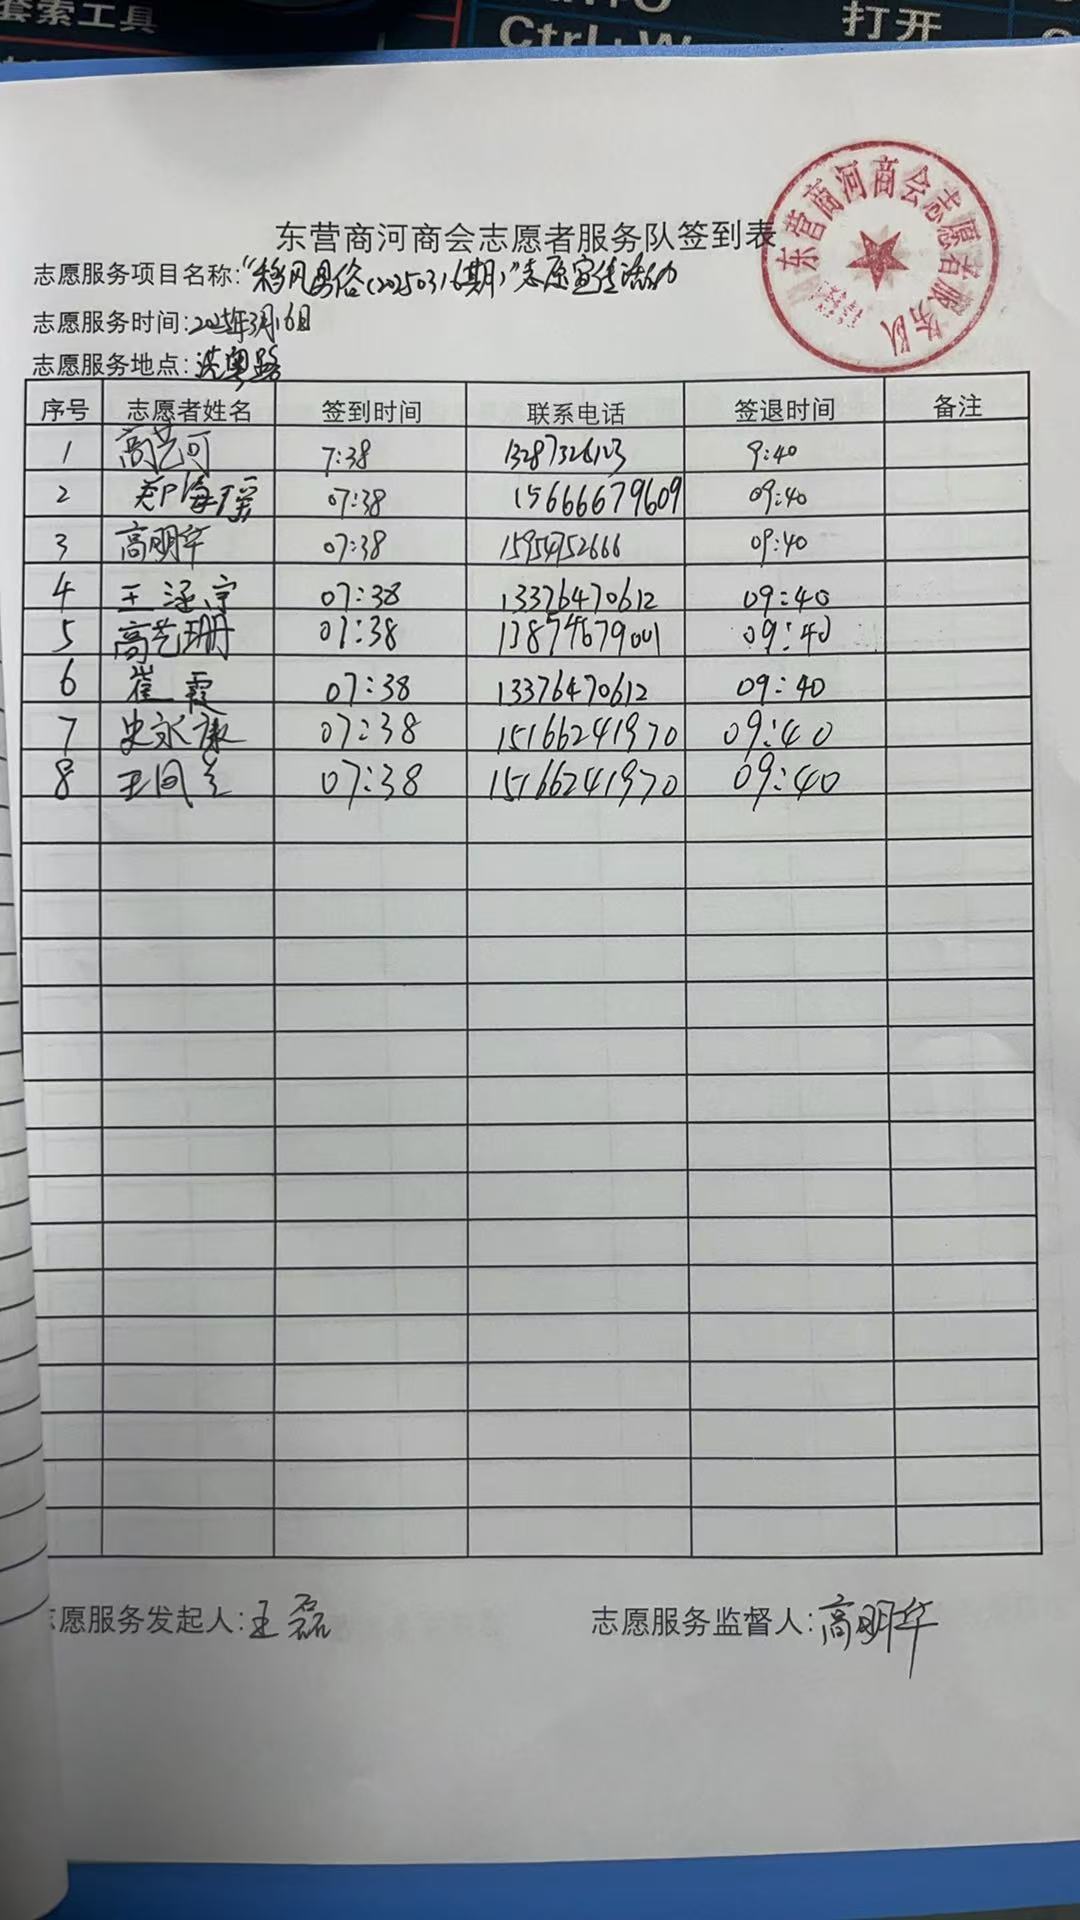 套索工具
Ctrl+W
打开
东营商河商会志愿者服务队
东营商河商会志愿者服务队签到表
志愿服务项目名称:“移风易俗(20250316期)”志愿宣传活动
志愿服务时间:2025年3月16日
志愿服务地点:
序号 志愿者姓名 签到时间 联系电话 签退时间 备注
1 高艺可 7:38 9:40
2 郑海瑶 07:38 15666679609 09:40
3 高明华 07:38 15954752666 09:40
4 王涵宇 07:38 13376470612 09:40
5 高艺珊 07:38 09:40
6 崔霞 07:38 13376470612 09:40
7 史永康 07:38 15166241970 09:40
8 07:38 15166241970 09:40
志愿服务发起人:王磊 志愿服务监督人:高明华